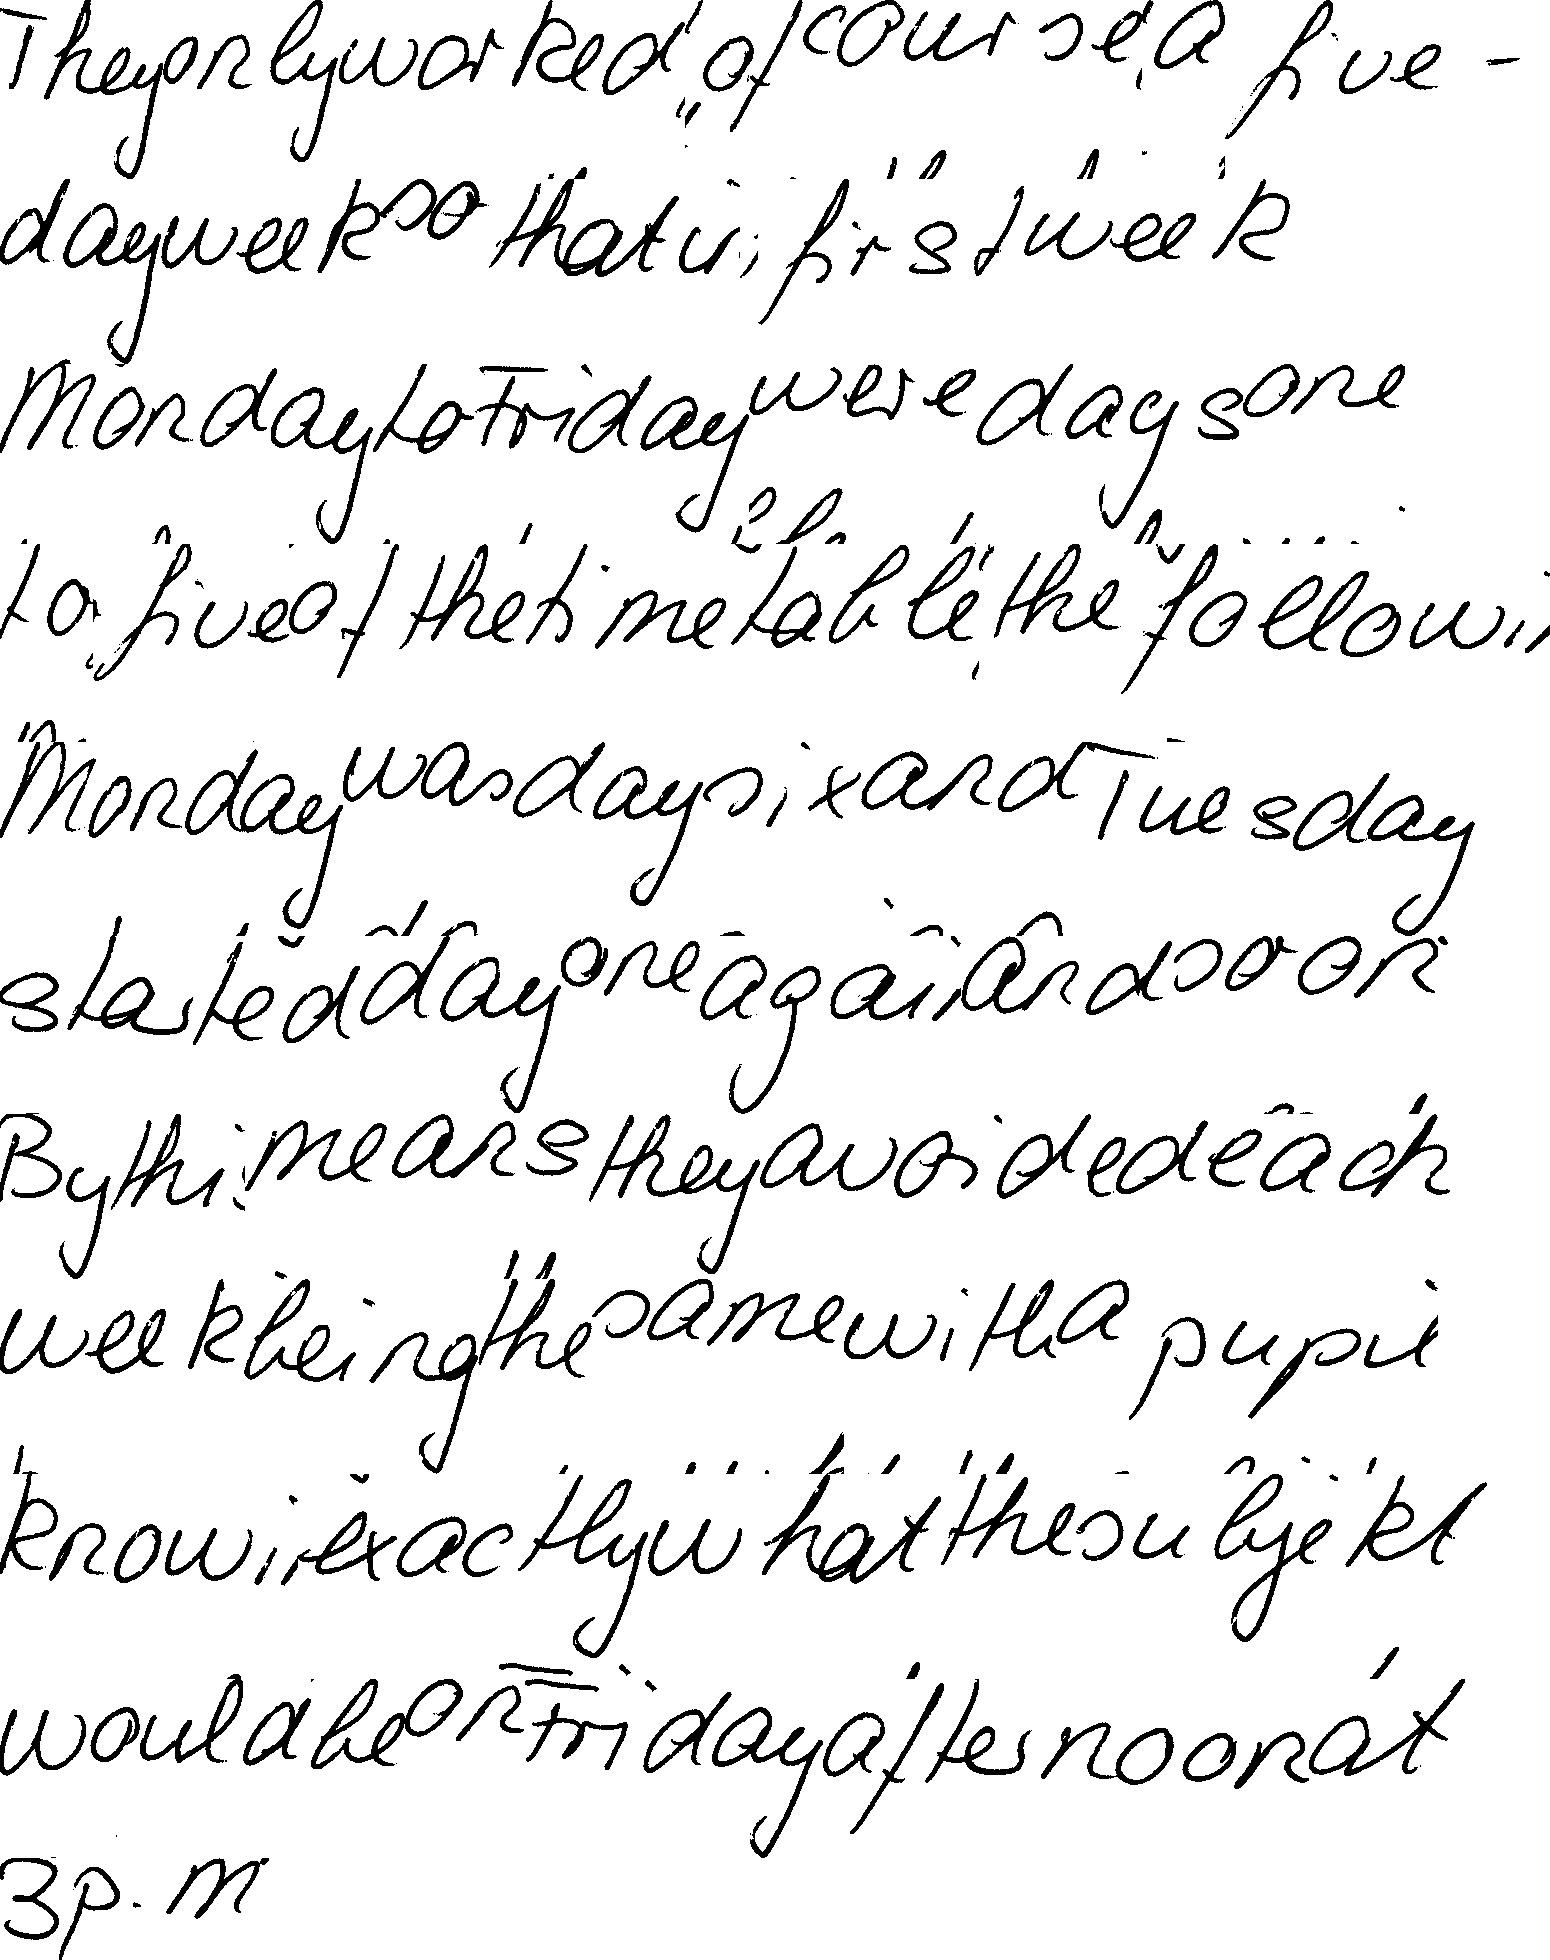 They only worked, of course, a five-
day week so that in first week
Monday to Friday were days one
to five of the timetable, the followin
Monday was day six and Tuesday
started day one again and so on
By this means they avoided each
week being the same with a pupil
knowing exactly what the subjekt
would be on Friday afternoon at
3 p.m